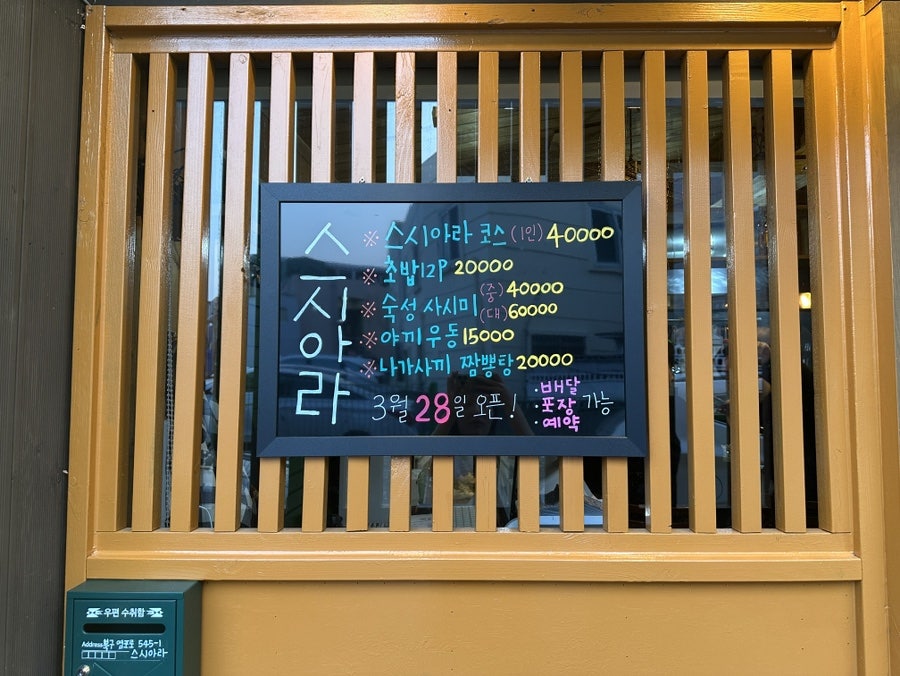 스시아라
※ 스시아라 코스 (1인) 40000
※ 초밥12P 20000
※ 숙성 사시미 (중) 40000
(대) 60000
※ 야끼우동 15000
※ 나가사끼 짬뽕탕 20000
3월 28일 오픈!
·배달
·포장 가능
·예약
우편 수취함
Address 북구 545-1
스시아라